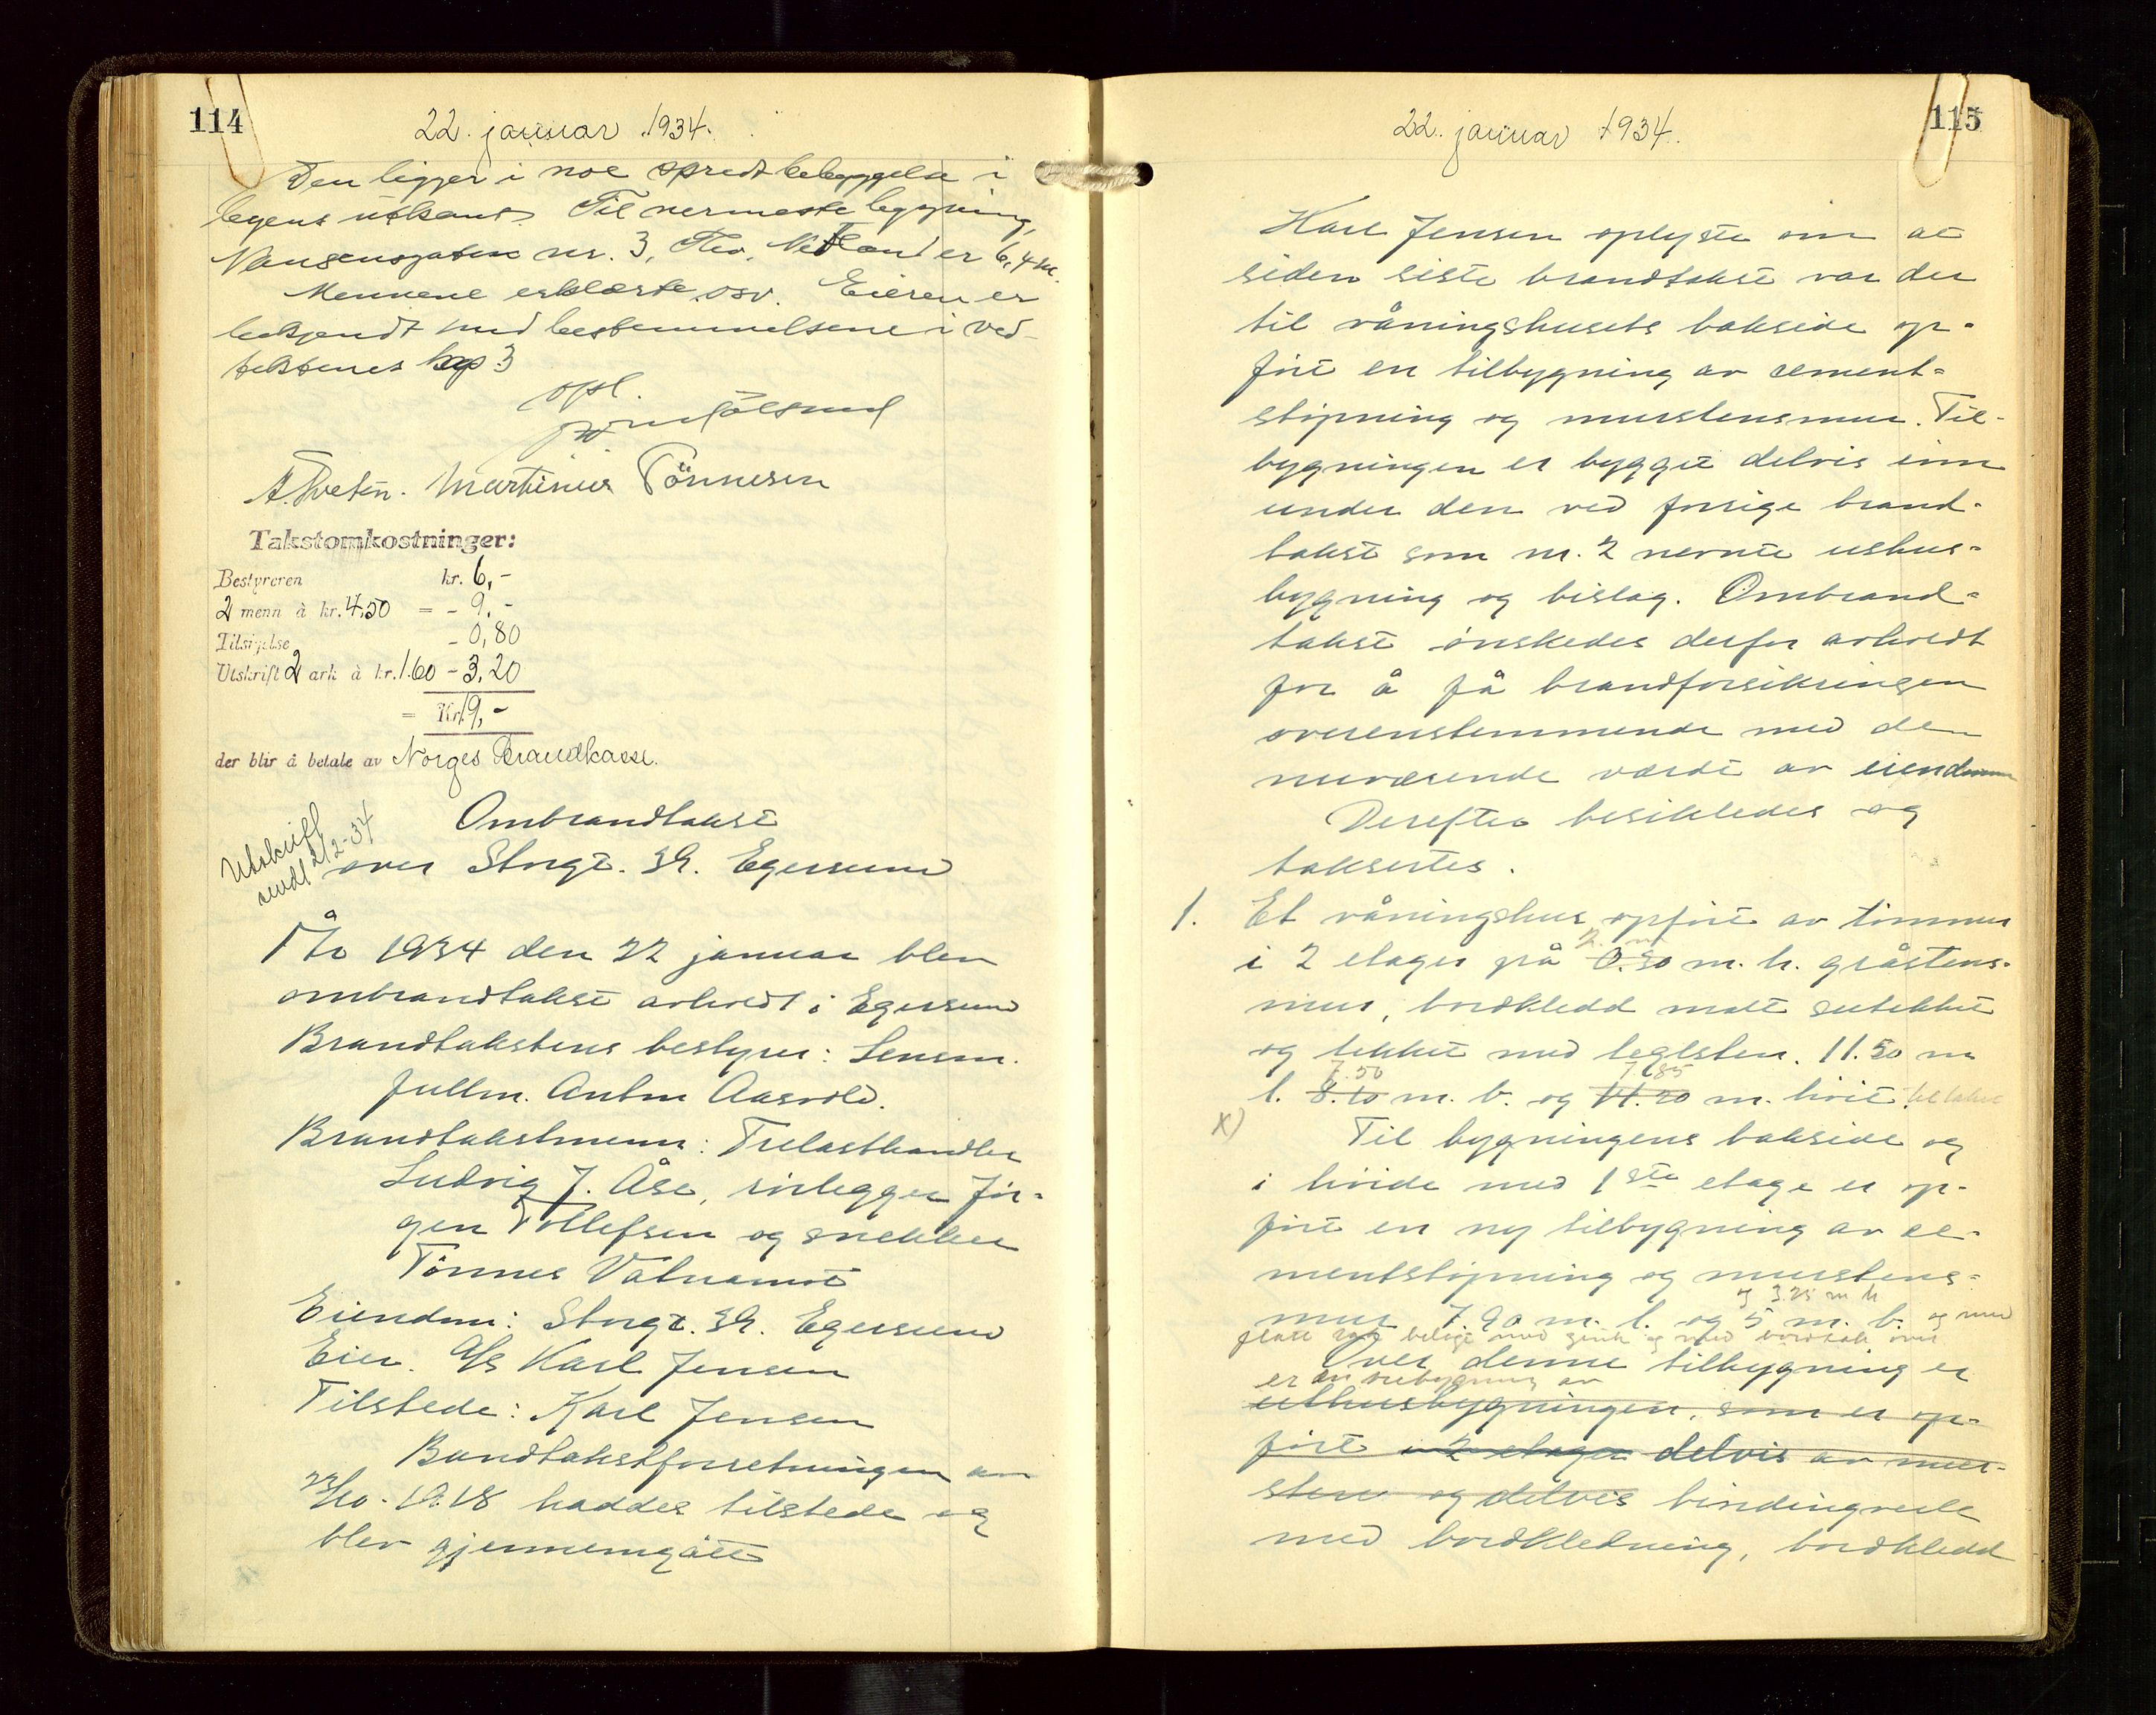 114
22. januar 1934.
Den ligger i noe spredt bebyggelse i
byens utkant. Til nermeste bygning,
Nansensgaten nr. 3, Theo. Netland er 6,4 m.
Mennene erklærte osv. Eieren er
bekjendt med bestemmelsene i ved-
tektenes kap 3
opl.
A. Tveten. Martinius Tönnesen
Takstomkostninger:
Bestyreren kr. 6,-
2 menn à kr. 4,50 = - 9,-
Tilsigelse - 0,80
Utskrift 2 ark à kr. 1.60 - 3,20
= Kr. 19,-
der blir å betale av Norges Brandkasse.
Utskrift
sendt 2/2-34
Ombrandtakst
over Storgt. 39. Egersund
År 1934 den 22 januar blev
ombrandtakst avholdt i Egersund
Brandtakstens bestyrer: Lensm.
fullm. Anton Aasvold.
Brandtakstmenn: Trelasthandler
Ludvig J. Åse, rørlegger Jør-
gen Tollefsen og snekker
Tönnes Vatnamot
Eiendom: Storgt. 39. Egersund
Eier. A/S Karl Jensen
Tilstede: Karl Jensen
Bandtakstforretningen av
22/10. 1918 haddes tilstede og
blev gjennemgått
115
22. januar 1934.
Karl Jensen oplyste om at
siden siste brandtakst var der
til våningshusets bakside op-
ført en tilbygning av cement-
støpning og murstensmur. Til-
bygningen er bygget delvis inn
under den ved forrige brand-
takst som nr. 2 nevnte uthus-
bygning og bislag. Ombrand-
takst ønskedes derfor avholdt
for å få brandforsikringen
overenstemmende med den
nuværende værdi av eiendommen
Derefter besiktedes og
taksertes.
1. Et våningshus opført av tømmer
2. m
i 2 etager på 0.90 m. h. gråstens-
mur, bordkledd malt sutekket
og tekket med teglsten. 11.50 m
7.50 7.85
l. 8.10 m. b. og 11.20 m. høit
x) Til bygningens bakside og
i høide med 1ste etage er op-
ført en ny tilbygning av ce-
mentstøpning og murstens-
og 3.25 m h
mur 7.90 m. l. og 5 m. b. og med
flatt tak belagt med zink og med bordtak over
Over denne tilbygning er
er en overbygning av
uthusbygningen, som er op-
ført i 2 etager delvis av mur-
sten og delvis bindingverk
med bordkledning, bordkledd